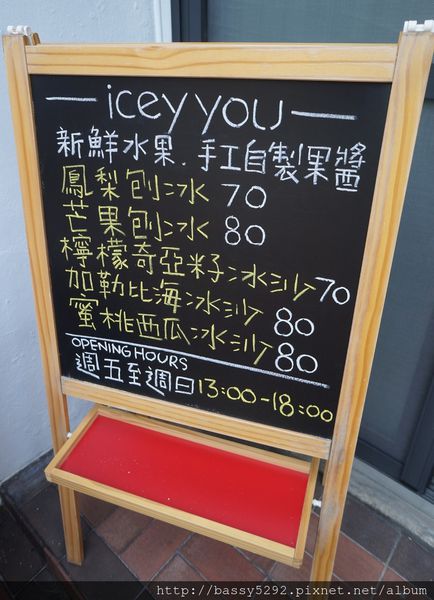 icey you
新鮮水果．手工自製果醬
鳳梨刨冰 70
芒果刨冰 80
檸檬奇亞籽冰沙 70
加勒比海冰沙 80
蜜桃西瓜冰沙 80
OPENING HOURS
週五至週日 13:00-18:00
http://bassy5292.pixnet.net/album